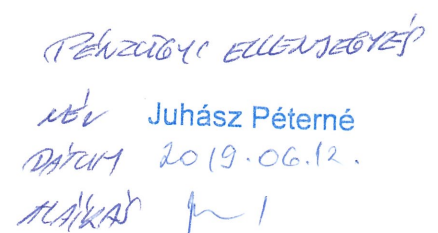 PÉNZÜGYI ELLENJEGYZÉS
NÉV Juhász Péterné
DÁTUM 2019.06.12.
ALÁÍRÁS